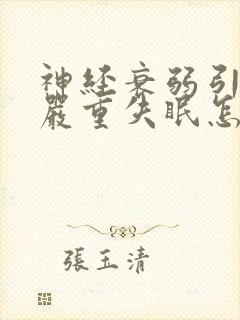 神經衰弱引
嚴重失眠怎
張玉清